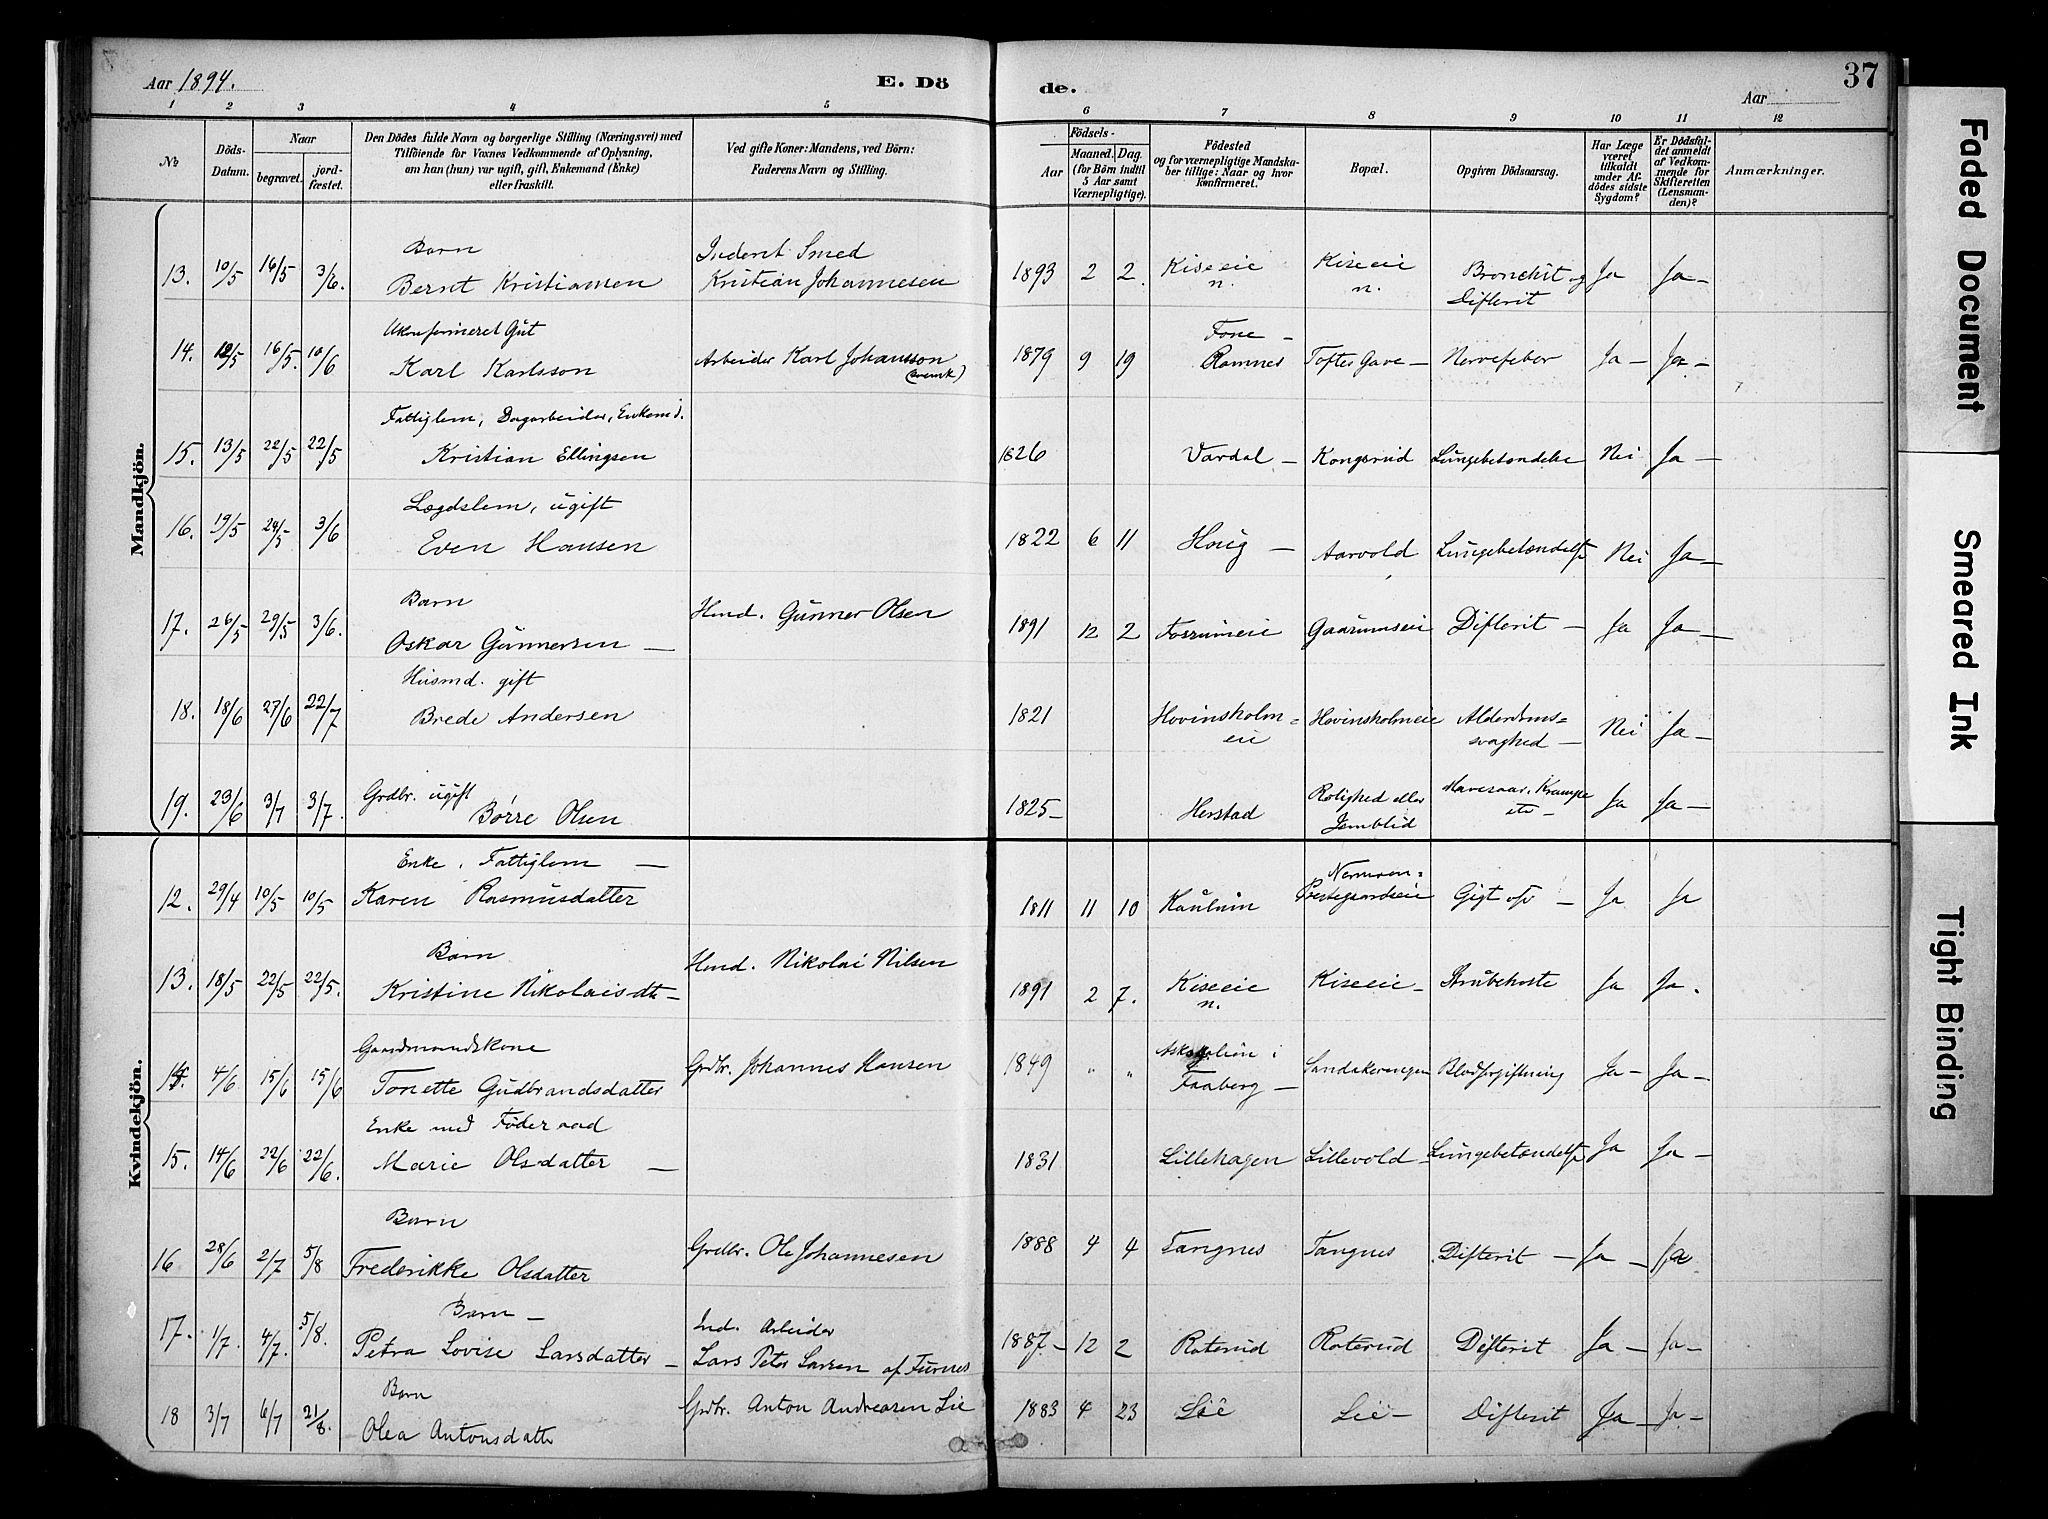 Aar 1894.
E. Dö
de.
Aar
37
1 2 3 4 5 6 7 8 9 10 11 12
No
Döds-Datum.
Naar
begravet.
jordfæstet.
Den Dödes fulde Navn og borgerlige Stilling (Næringsvei) med
Tilföiende for Voxnes Vedkommende af Oplysning,
om han (hun) var ugift, gift, Enkemand (Enke)
eller fraskilt.
Ved gifte Koner: Mandens, ved Börn:
Faderens Navn og Stilling.
Födsels-
Aar
Maaned. Dag.
(for Börn indtil
5 Aar samt
Værnepligtige).
Födested
og for værnepligtige Mandska-
ber tillige: Naar og hvor
konfirmeret.
Bopæl.
Opgiven Dödsaarsag.
Har Læge
været
tilkaldt
under Af-
dödes sidste
Sygdom?
Er Dödsfal-
det anmeldt
af Vedkom-
mende for
Skifteretten
(Lensman-
den)?
Anmærkninger.
Mandkjön.
Barn Inderst Smed
13. 10/5 16/5 3/6. Bernt Kristiansen Kristian Johannesen 1893 2 2. Kiseeie n. Kiseeie n. Bronchit og Difterit Ja Ja -
Ukonfirmeret Gut Fone -
14. 12/5 16/5. 10/6 Karl Karlsson Arbeider Karl Johansson (svensk) 1879 9 19 Ramnes Toftes Gave - Nervefeber Ja - Ja -
Fattiglem, Dagarbeider, Enkemd.
15. 13/5 22/5 22/5 Kristian Ellingsen 1826 Vardal - Kongsrud Lungebetændelse Nei Ja -
Lægdslem, ugift
16. 19/5 24/5 3/6 Even Hansen 1822 6 11 Houg - Aarvold Lungebetændelse Nei Ja -
Barn
17. 26/5 29/5 3/6. Oskar Gunnersen - Husmd. Gunner Olsen 1891 12 2 Fossumeie Gaarumseie Difterit - Ja Ja -
Husmd. gift
18. 18/6 27/6 22/7 Brede Andersen 1821 Hovinsholm= eie Hovinsholmeie Alderdoms= svaghed - Nei Ja -
Grdbr. ugift
19. 23/6 3/7 3/7. Børre Olsen 1825 - Herstad Rolighed eller Jemblid Mavesaar, Krampe etc - Ja Ja -
Kvindekjön.
Enke, Fattiglem -
12. 29/4 10/5 10/5 Karen Rasmusdatter 1811 11 10 Prestegaardseie Gigt - Ja Ja
Barn
13. 18/5 22/5 22/5. Kristine Nikolaisdtr - Husmd. Nikolai Nilsen 1891 2 7. Kiseeie n. Kiseeie - Strubehoste Ja Ja.
Gaardmandskone
14. 4/6 15/6 15/6 Tonette Gudbrandsdatter Grdbr. Johannes Hansen 1849 " " i Faaberg - Sandakerengen Blodforgiftning Ja - Ja -
Enke med Føderaad
15. 14/6 22/6 22/6. Marie Olsdatter - 1831 Lillehagen Lillevold - Lungebetændelse Ja Ja -
Barn
16 28/6 2/7 5/8 Frederikke Olsdatter Grdbr. Ole Johannesen 1888 4 4 Tangnes Tangnes Difterit - Ja - Ja
Barn - Ind. Arbeider
17. 1/7. 4/7. 5/8. Petra Lovise Larsdatter - Lars Peter Larsen af Furnes 1887 - 12 2 Roterud Roterud Difterit Ja - Ja -
Barn
18 3/7 6/7 21/8. Olea Antonsdatter Grdbr. Anton Andreasen Lie 1883 4 23 Lie Lie - Difterit Ja - Ja -
Faded Document
Smeared Ink
Tight Binding